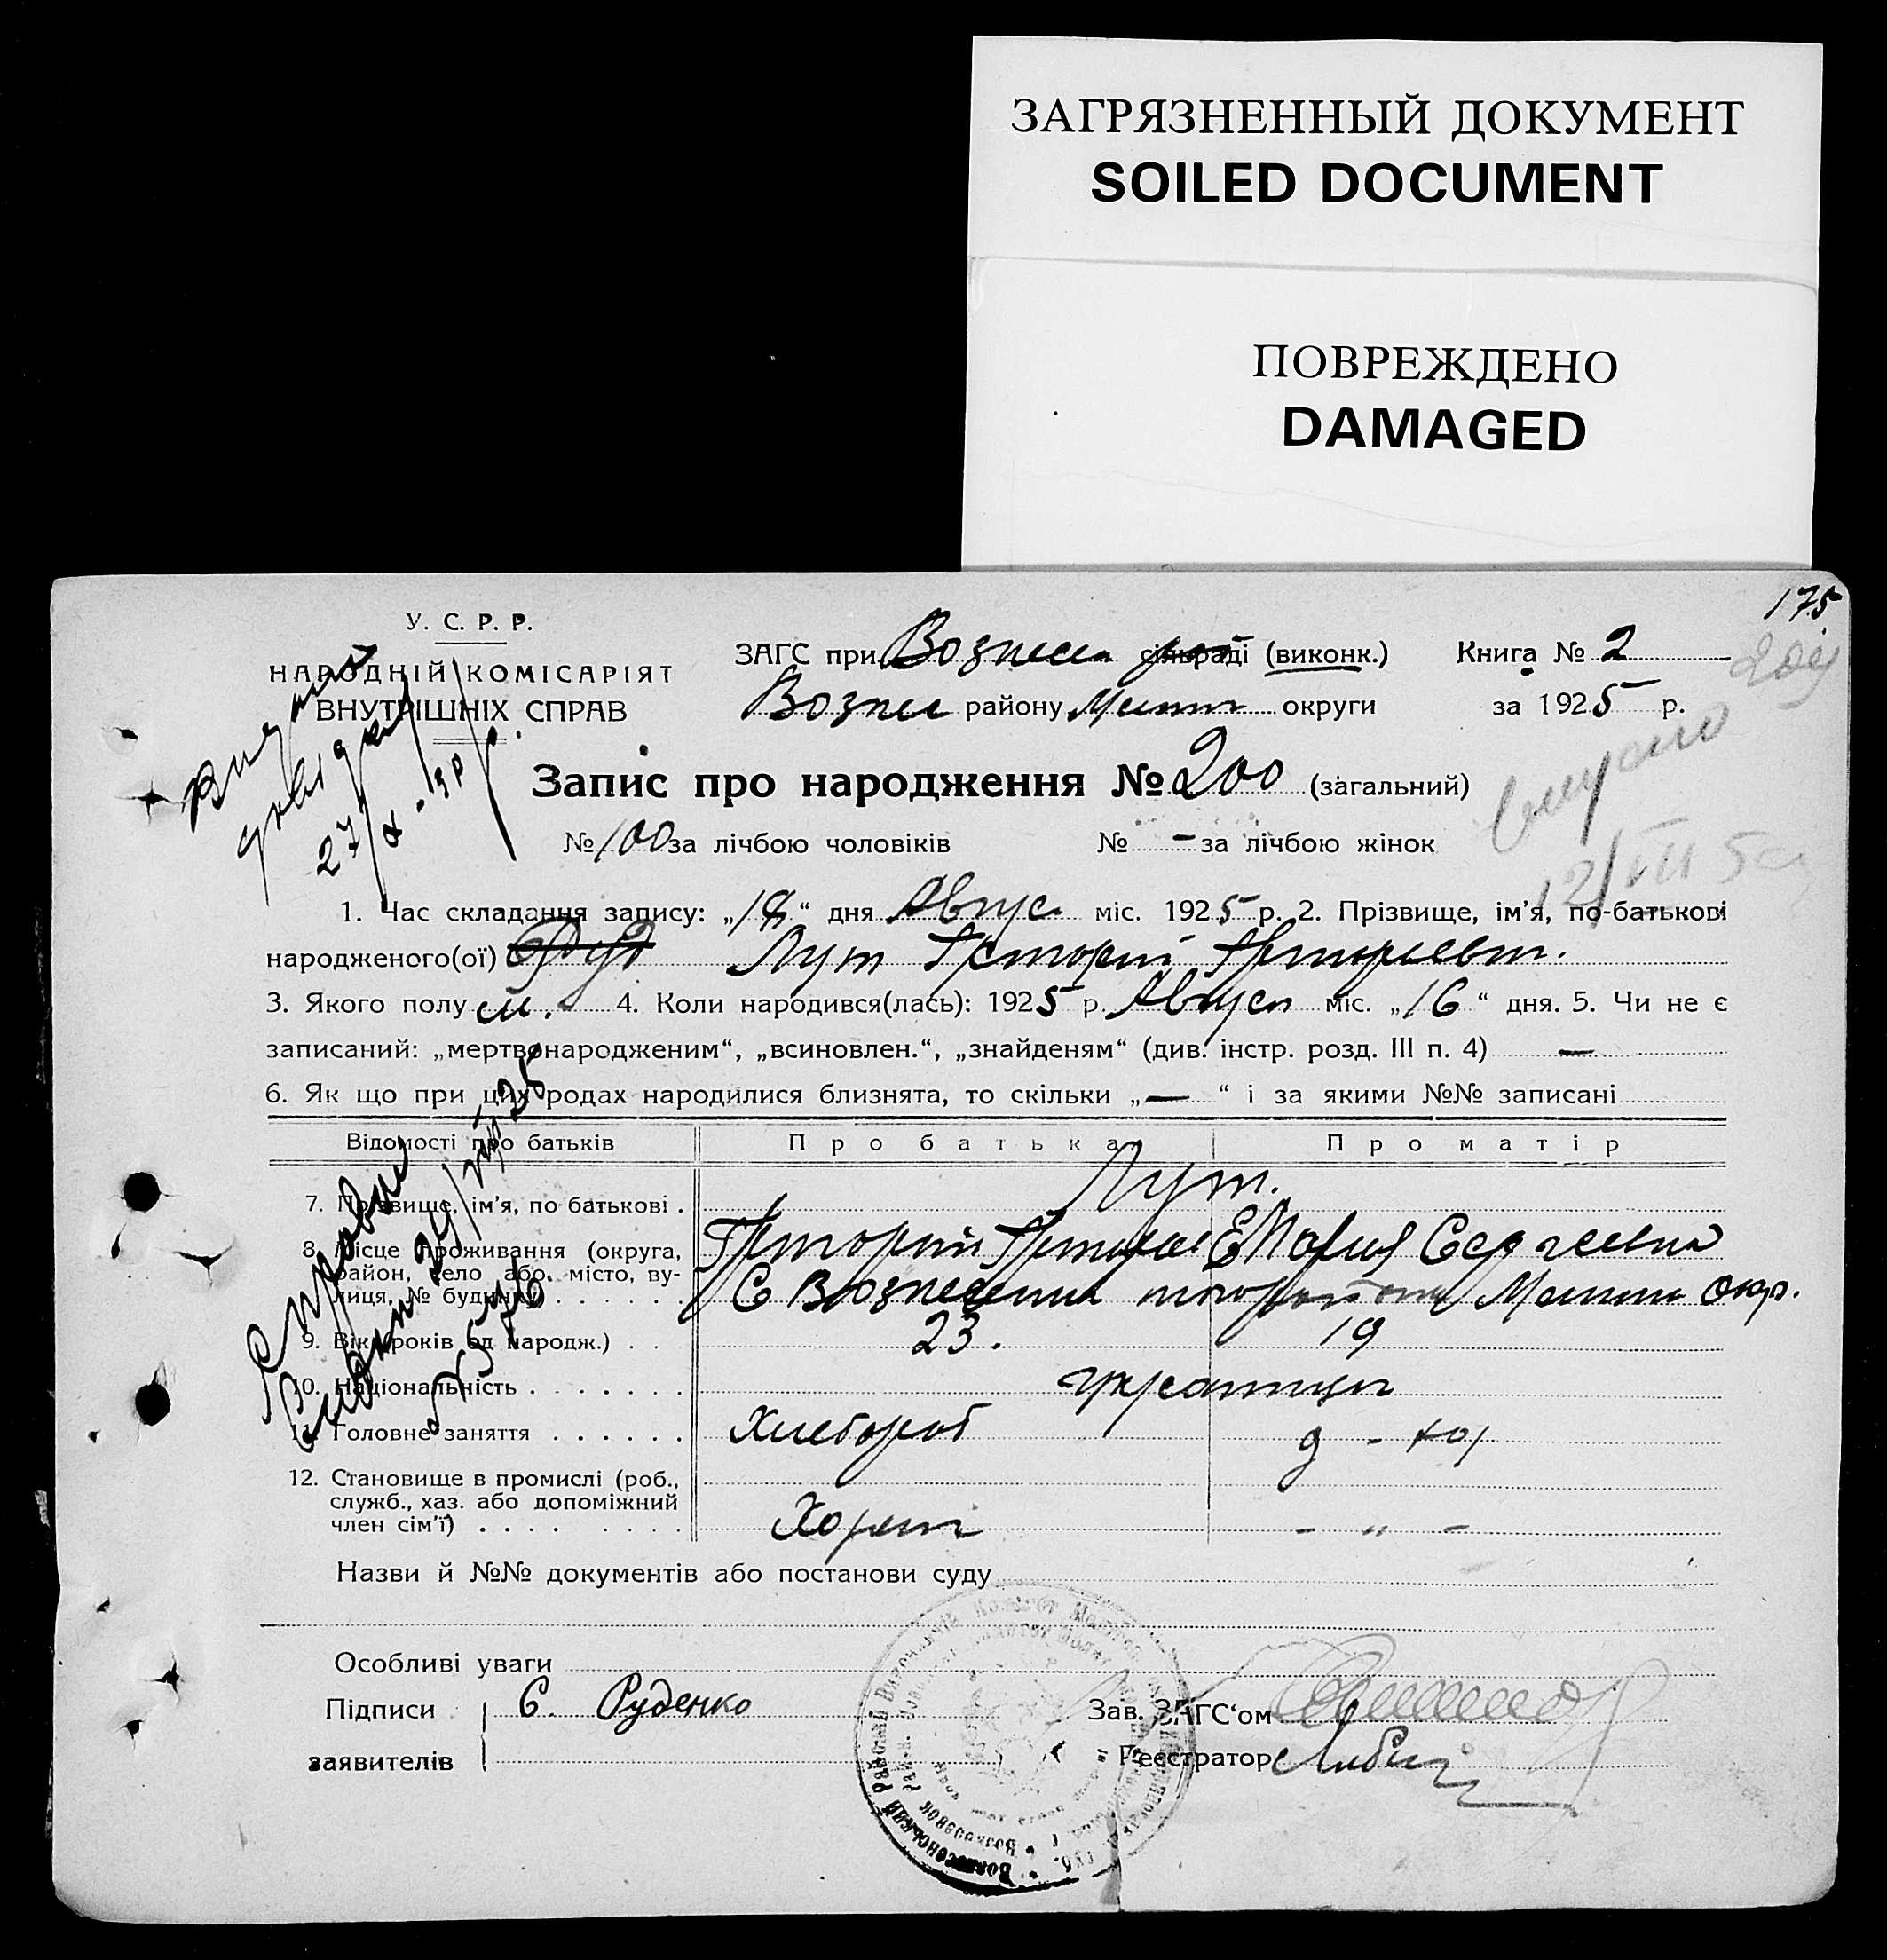 ЗАГРЯЗНЕННЫЙ ДОКУМЕНТ
SOILED DOCUMENT
ПОВРЕЖДЕНО
DAMAGED
175
У. С. Р. Р.
НАРОДНІЙ КОМІСАРІЯТ
ВНУТРІШНІХ СПРАВ
ЗАГС при Вознесен сільраді (виконк.) Книга № 2
Вознес району округи за 1925 р.
Запис про народження № 200 (загальний)
№ 100 за лічбою чоловіків № - за лічбою жінок
1. Час складання запису: „18“ дня Август міс. 1925 р. 2. Прізвище, ім'я, по-батькові
народженого(ої) Лут Григорий Григорьевич.
3. Якого полу м. 4. Коли народився(лась): 1925 р. Август міс. „16“ дня. 5. Чи не є
записаний: „мертвонародженим“, „всиновлен.“, „знайденям“ (див. інстр. розд. III п. 4) —
6. Як що при цих родах народилися близнята, то скільки „—“ і за якими №№ записані
Відомості про батьків Про батька Про матір
Лут.
7. Прізвище, ім'я, по батькові .
Григорий Григорьев Мария Сергеевна
8. Місце проживання (округа,
район, село або місто, ву-
лиця, № будинку) . . . . . .
С Вознесенка того района окр.
9. Вік (років од народж.) . . 23. 19
10. Національність . . . . . . . украинцы
11. Головне заняття . . . . . . Хлебороб
12. Становище в промислі (роб.,
служб., хаз. або допоміжний
член сім'ї) . . . . . . . . - „ -
Назви й №№ документів або постанови суду
Особливі уваги
Підписи С. Руденко Зав. ЗАГС'ом
заявителів Реєстратор